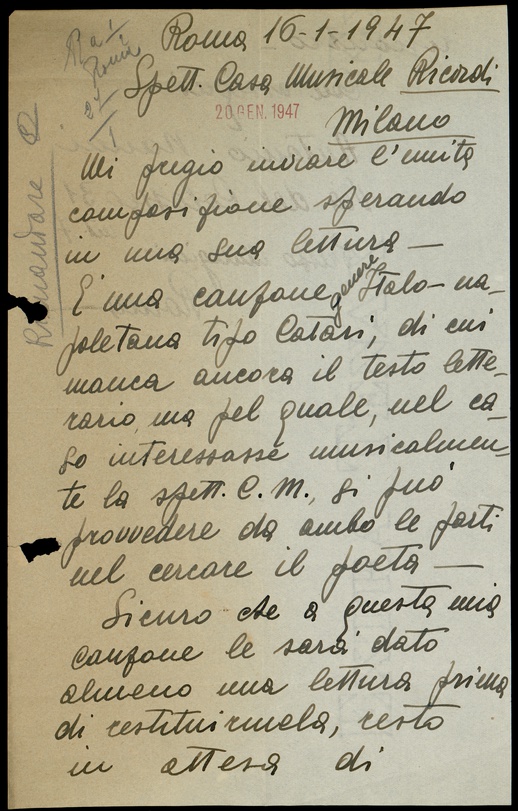 Roma 16-1-1947
Spett. Casa Musicale Ricordi
20 GEN. 1947
Milano
Rimandare
Mi pregio inviare l'unita
composizione sperando
in una sua lettura —
È una canzone genere Italo-na-
poletana tipo Catarì, di cui
manca ancora il testo lette-
rario, ma pel quale, nel ca-
so interessasse musicalmen-
te la spett. C. M., si può
provvedere da ambo le parti
nel cercare il poeta —
Sicuro che a questa mia
canzone le sarà dato
almeno una lettura prima
di restituirmela, resto
in attesa di